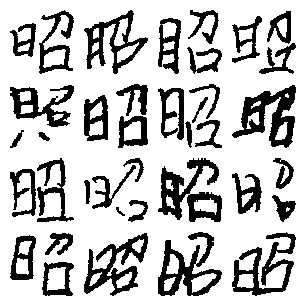 昭昭昭昭
照昭昭昭
昭昭昭昭
昭昭昭昭